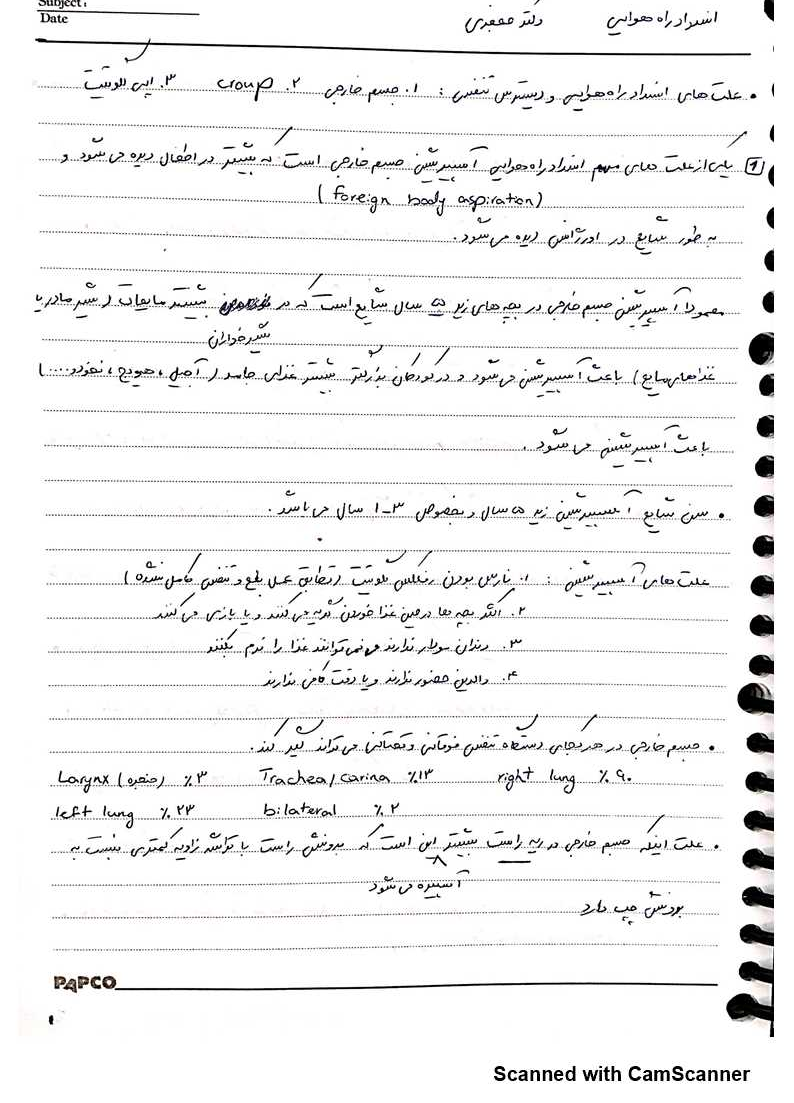 Subject:
Date
انسداد راه هوایی دکتر جعفری
• علت های انسداد راه هوایی و دیسترس تنفسی : ۱. جسم خارجی ۲. croup ۳. اپی گلوتیت
1 یکی از علت های مهم انسداد راه هوایی آسپیریشن جسم خارجی است که بیشتر در اطفال دیده می شود و
(foreign body aspiration)
به طور شایع در اورژانس دیده می شود.
معمولا آسپیریشن جسم خارجی در بچه های زیر ۵ سال شایع است که در بیشتر مایعات (شیر مادر یا
شیرخواران
غذاهای مایع) باعث آسپیریشن می شود و در کودکان بزرگتر بیشتر غذای جامد (آجیل، هویج، نخود و....)
باعث آسپیریشن می شود.
• سن شایع آسپیریشن زیر ۵ سال و بخصوص ۳-۱ سال می باشد.
علت های آسپیریشن : ۱. نارس بودن رفلکس گلوتیت (تطابق عمل بلع و تنفس کامل نشده)
۲. اکثر بچه ها در حین غذا خوردن گریه می کنند و یا بازی می کنند
۳. دندان مولار ندارند و نمی توانند غذا را نرم بکنند
۴. والدین حضور ندارند و یا دقت کافی ندارند
• جسم خارجی در هر کجای دستگاه تنفس فوقانی و تحتانی می تواند گیر کند.
Larynx (حنجره) ٪۳ Trachea/carina ٪۱۳ right lung ٪۶۰
left lung ٪۲۳ bilateral ٪۲
• علت اینکه جسم خارجی در ریه راست بیشتر این است که برونش راست با تراشه زاویه کمتری نسبت به
آسپیره می شود
برونش چپ دارد
PAPCO
۱
Scanned with CamScanner